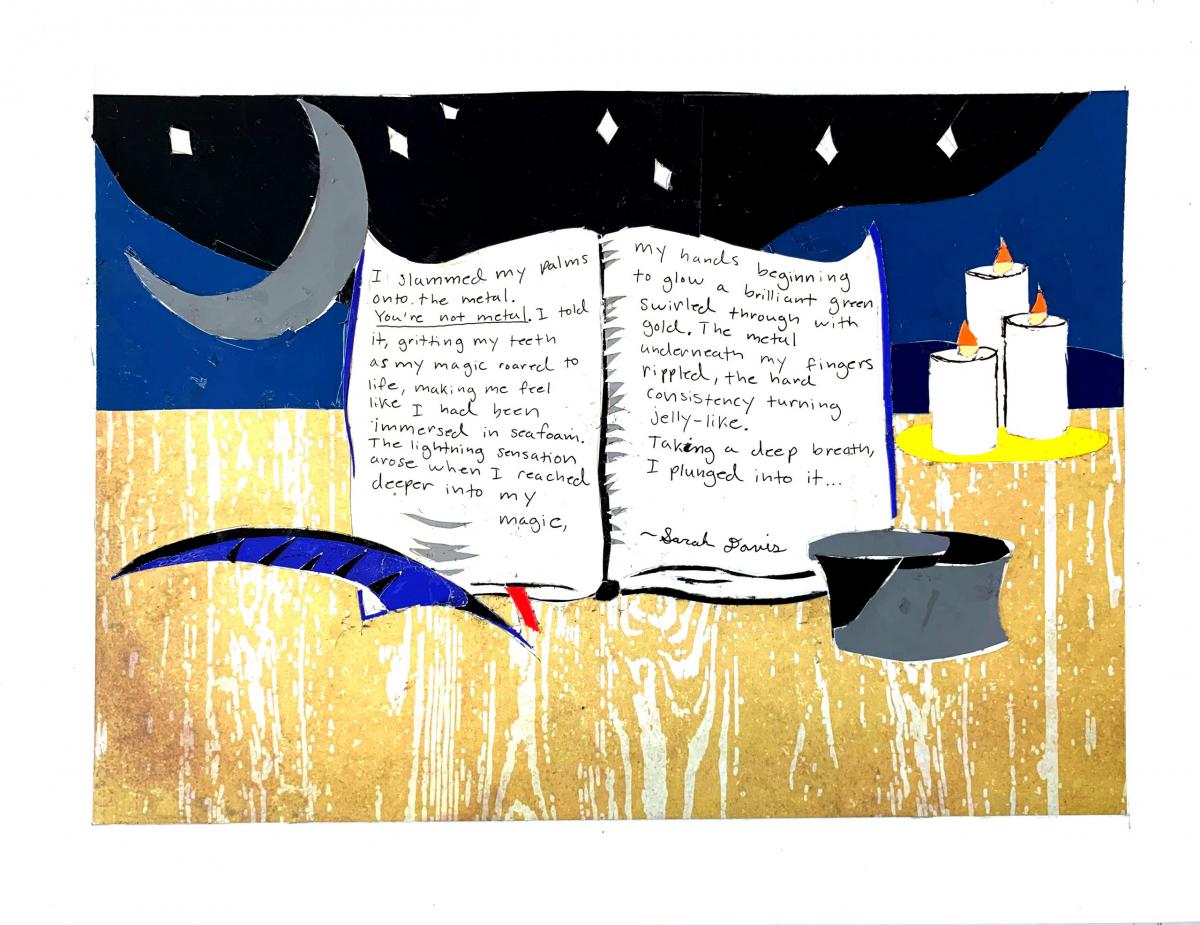 I slammed my palms
onto the metal.
You're not metal. I told
it, gritting my teeth
as my magic roared to
life, making me feel
like I had been
immersed in seafoam.
The lightning sensation
arose when I reached
deeper into my
magic,
my hands beginning
to glow a brilliant green,
swirled through with
gold. The metal
underneath my fingers
rippled, the hard
consistency turning
jelly-like.
Taking a deep breath,
I plunged into it...
~Sarah Davis